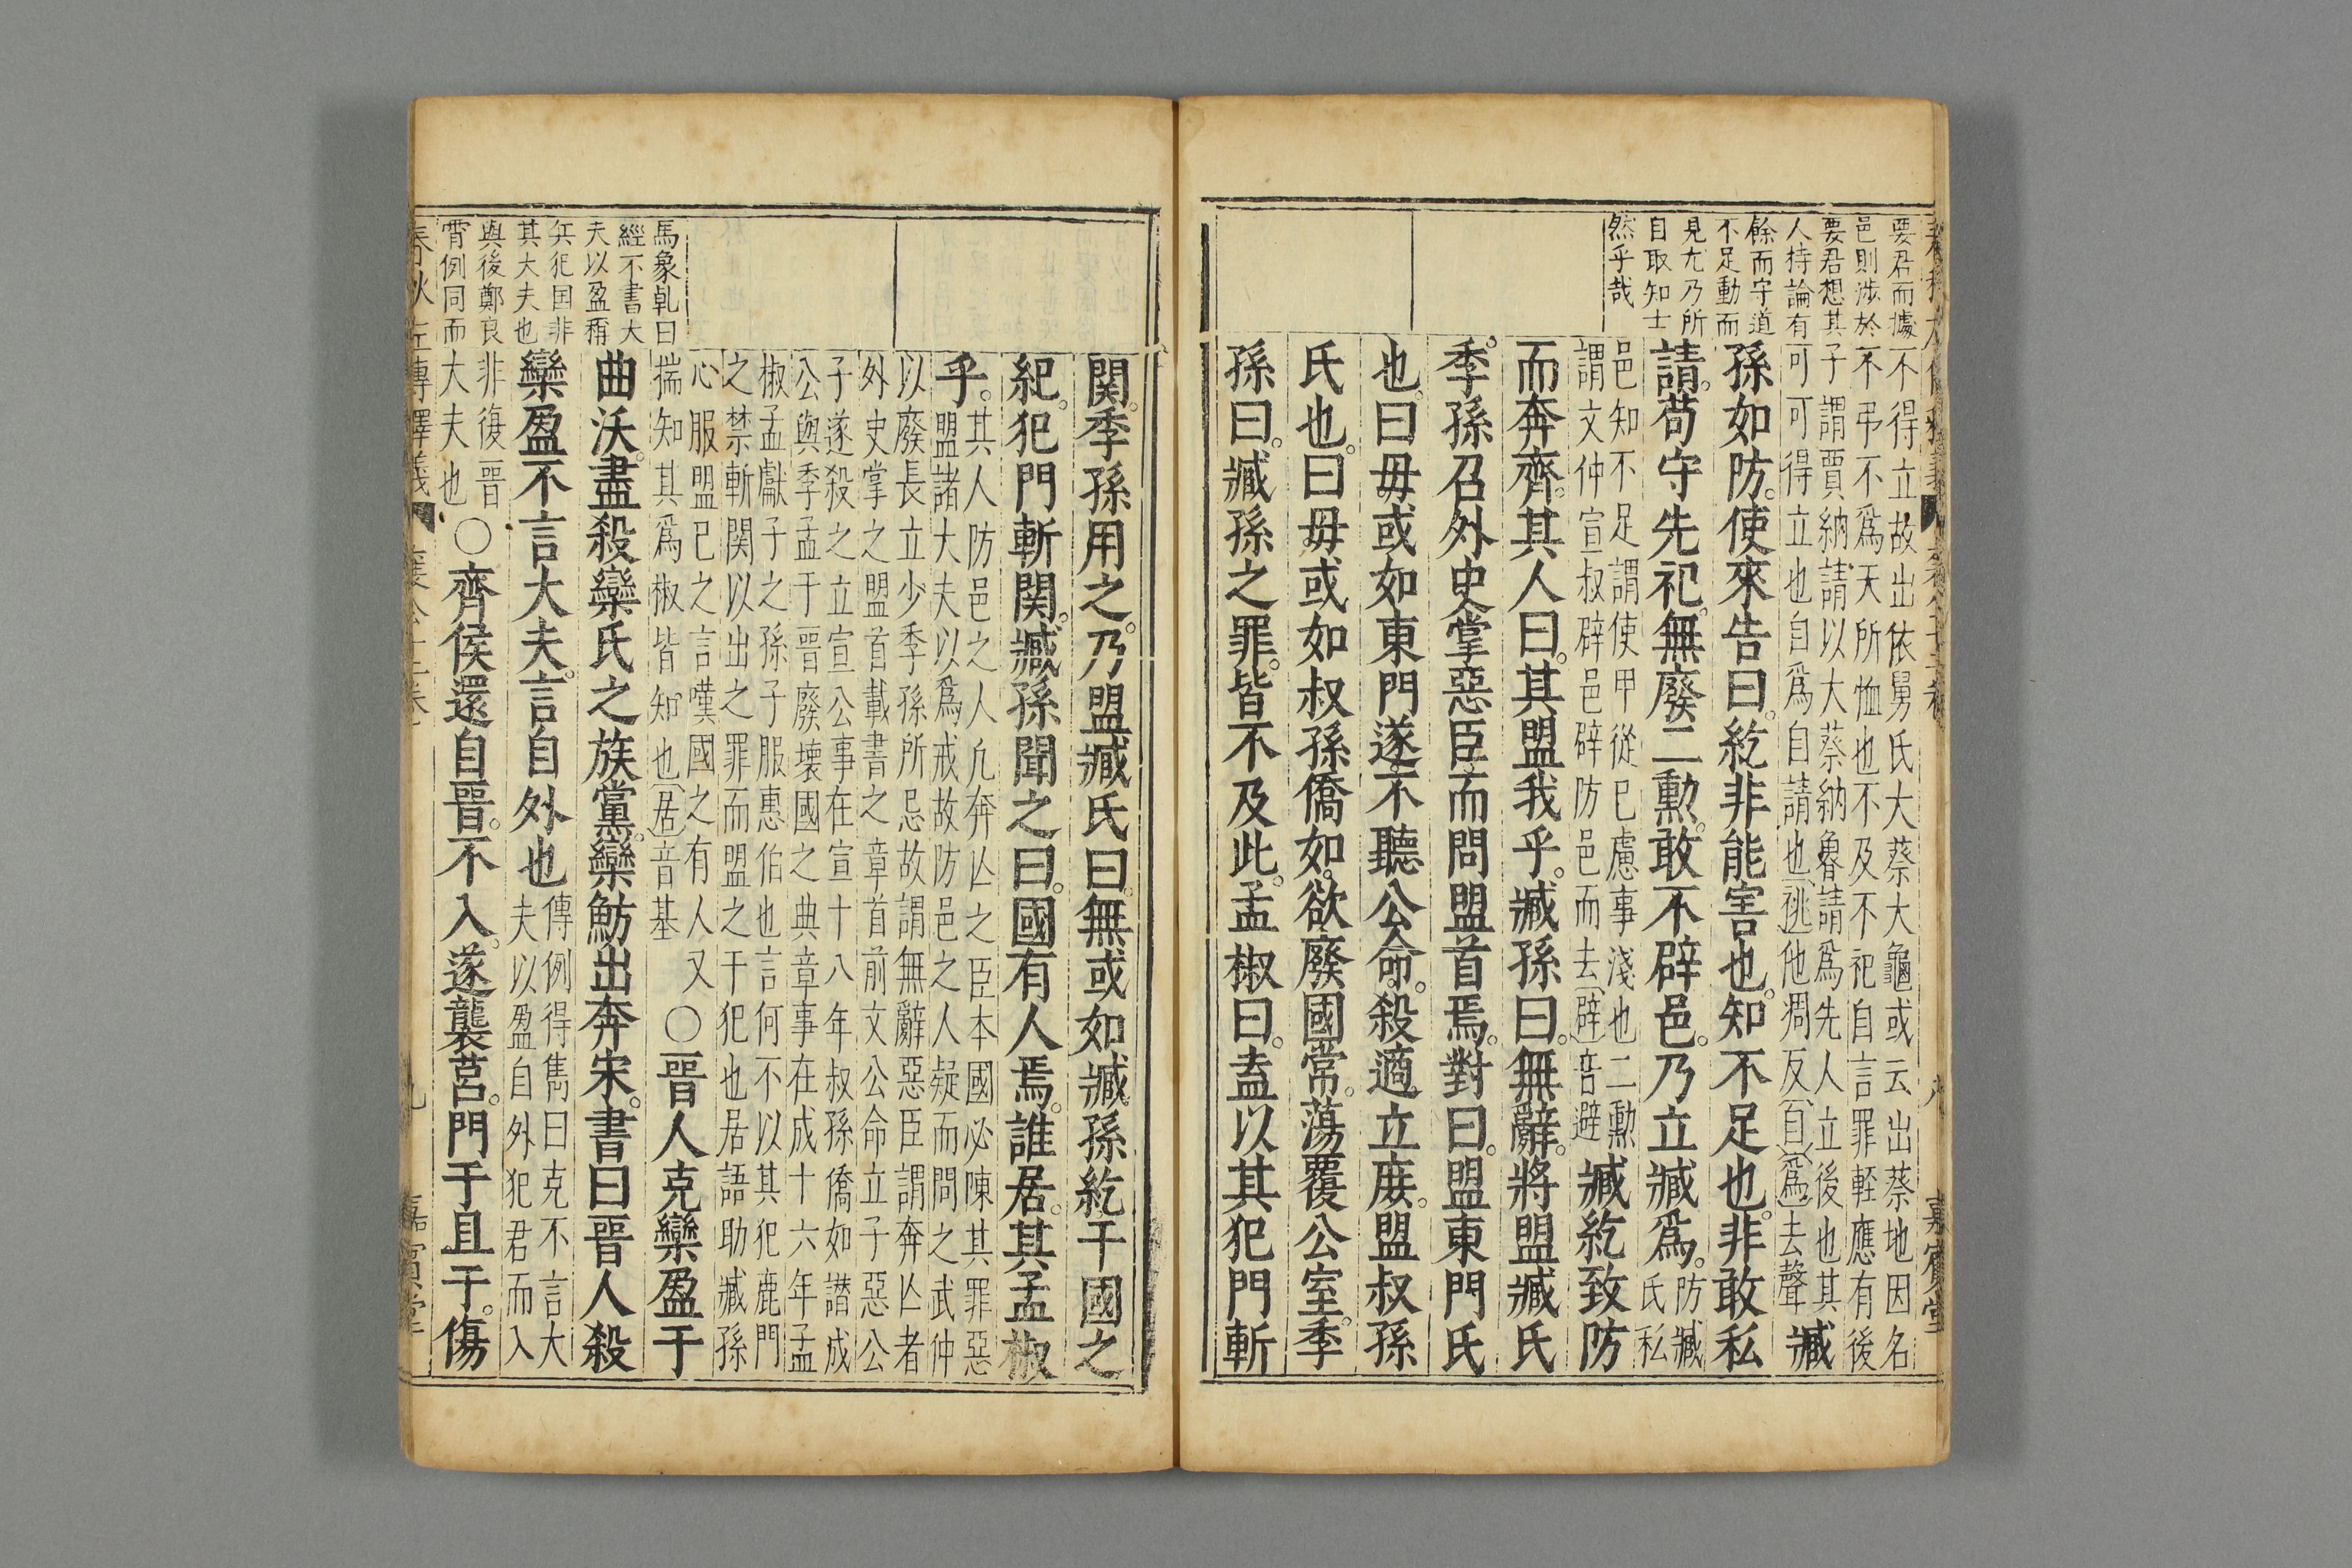 要君而據
邑則涉於
要君想其
人持論有
餘而守道
不足動而
見尤乃所
自取知士
然乎哉
不得立故出依舅氏大蔡大龜或云出蔡地因名
不弔不爲天所恤也不及不祀自言罪輊應有後
子謂賈納請以大蔡納魯請爲先人立後也其
可可得立也自爲自請也祧他凋反自爲去聲
臧
孫如防使來告曰紇非能害也知不足也非敢私
請苟守先祀無廢二勳敢不辟邑乃立臧爲
防臧
氏私
邑知不足謂使甲從已慮事淺也二勲
謂文仲宣叔辟邑辟防邑而去辟音避
臧紇致防
而奔齊其人曰其盟我乎臧孫曰無辭將盟臧氏
季孫召外史掌惡臣而問盟首焉對曰盟東門氏
也曰毋或如東門遂不聽公命殺適立庶盟叔孫
氏也曰毋或如叔孫僑如欲廢國常蕩覆公室季
孫曰臧孫之罪皆不及此孟椒曰盍以其犯門斬
嘉賓堂
関季孫用之乃盟臧氏曰無或如臧孫紇干國之
紀犯門斬関臧孫聞之曰國有人焉誰居其孟椒
乎
其人防邑之人凢奔亾之臣本國必陳其罪惡
盟諸大夫以爲戒故防邑之人疑而問之武仲
以廢長立少季孫所忌故謂無辭惡臣謂奔亾者
外史掌之盟首載書之章首前文公命立子惡公
子遂殺之立宣公事在宣十八年叔孫僑如譖成
公與季孟于晋廢壊國之典章事在成十六年孟
椒孟獻子之孫子服惠伯也言何不以其犯鹿門
之禁斬関以出之罪而盟之干犯也居語助臧孫
心服盟已之言嘆國之有人又
揣知其爲椒皆知也居音基
〇晋人克欒盈于
曲沃盡殺欒氏之族黨欒魴出奔宋書曰晋人殺
欒盈不言大夫言自外也
傳例得雋曰克不言大
夫以盈自外犯君而入
非復晋
大夫也
〇齊侯還自晋不入遂襲莒門于且于傷
馬象乹曰
經不書大
夫以盈稱
兵犯囯非
其大夫也
與後鄭良
霄例同而
春秋左傳釋義